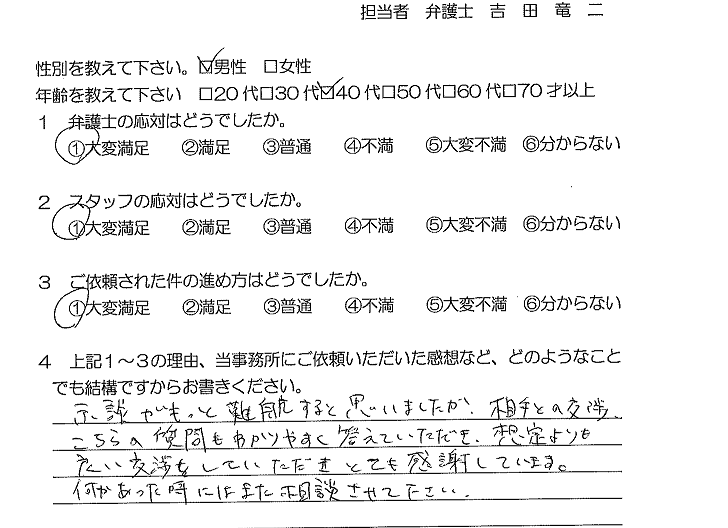 担当者 弁護士 吉田竜二
性別を教えて下さい。☑男性 □女性
年齢を教えて下さい □20代□30代☑40代□50代□60代□70才以上
1 弁護士の応対はどうでしたか。
①大変満足 ②満足 ③普通 ④不満 ⑤大変不満 ⑥分からない
2 スタッフの応対はどうでしたか。
①大変満足 ②満足 ③普通 ④不満 ⑤大変不満 ⑥分からない
3 ご依頼された件の進め方はどうでしたか。
①大変満足 ②満足 ③普通 ④不満 ⑤大変不満 ⑥分からない
4 上記1～3の理由、当事務所にご依頼いただいた感想など、どのようなこと
でも結構ですからお書きください。
示談がもっと難航すると思いましたが、相手との交渉、
こちらの質問もわかりやすく答えていただき、想定よりも
良い交渉をしていただきとても感謝しています。
何かあった時にはまた相談させて下さい。